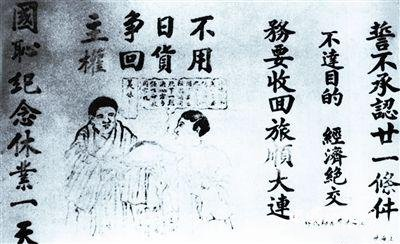 誓不承認廿一條件
不達目的 經濟絕交
務要收回旅順大連
不用
日貨
爭回
主權
國恥紀念休業一天